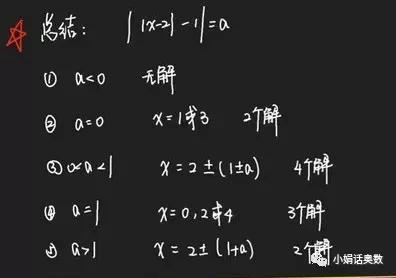 总结: ||x-2|-1|=a
① a<0 无解
② a=0 x=1或3 2个解
③ 0<a<1 x=2±(1±a) 4个解
④ a=1 x=0,2或4 3个解
⑤ a>1 x=2±(1+a) 2个解
小娟话奥数